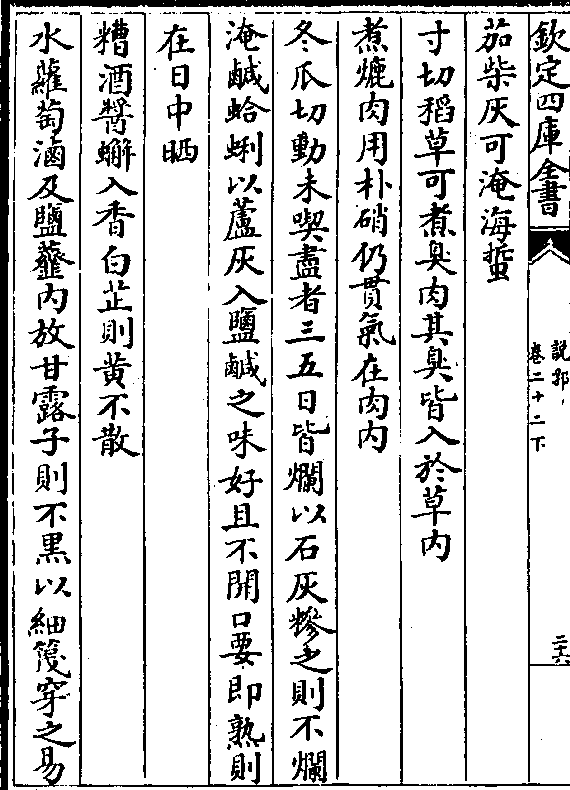 欽定四庫全書
說郛
卷二十二下
二十六
茄柴灰可淹海蜇
寸切稻草可煮臭肉其臭皆入於草内
煮爊肉用朴硝仍貫氣在肉内
冬瓜切動未喫盡者三五日皆爛以石灰糝之則不爛
淹鹹蛤蜊以蘆灰入鹽鹹之味好且不開口要即熟則
在日中晒
糟酒醬蠏入香白芷則黄不散
水蘿蔔滷及鹽虀内放甘露子則不黒以細篾穿之易